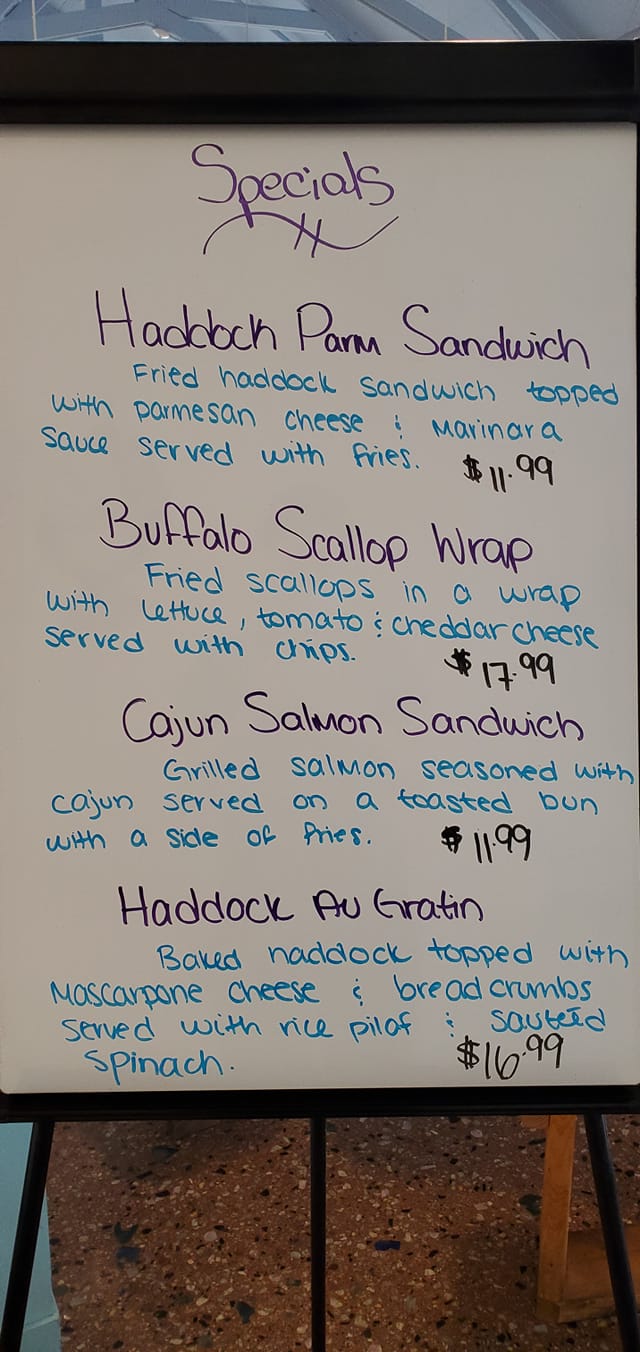 Specials
Haddock Parm Sandwich
Fried haddock sandwich topped
with parmesan cheese & Marinara
sauce served with fries. $11.99
Buffalo Scallop Wrap
Fried scallops in a wrap
with lettuce, tomato & cheddar cheese
served with chips. $17.99
Cajun Salmon Sandwich
Grilled salmon seasoned with
cajun served on a toasted bun
with a side of fries. $11.99
Haddock Au Gratin
Baked haddock topped with
Mascarpone cheese & bread crumbs
served with rice pilaf & sauteéd
spinach. $16.99